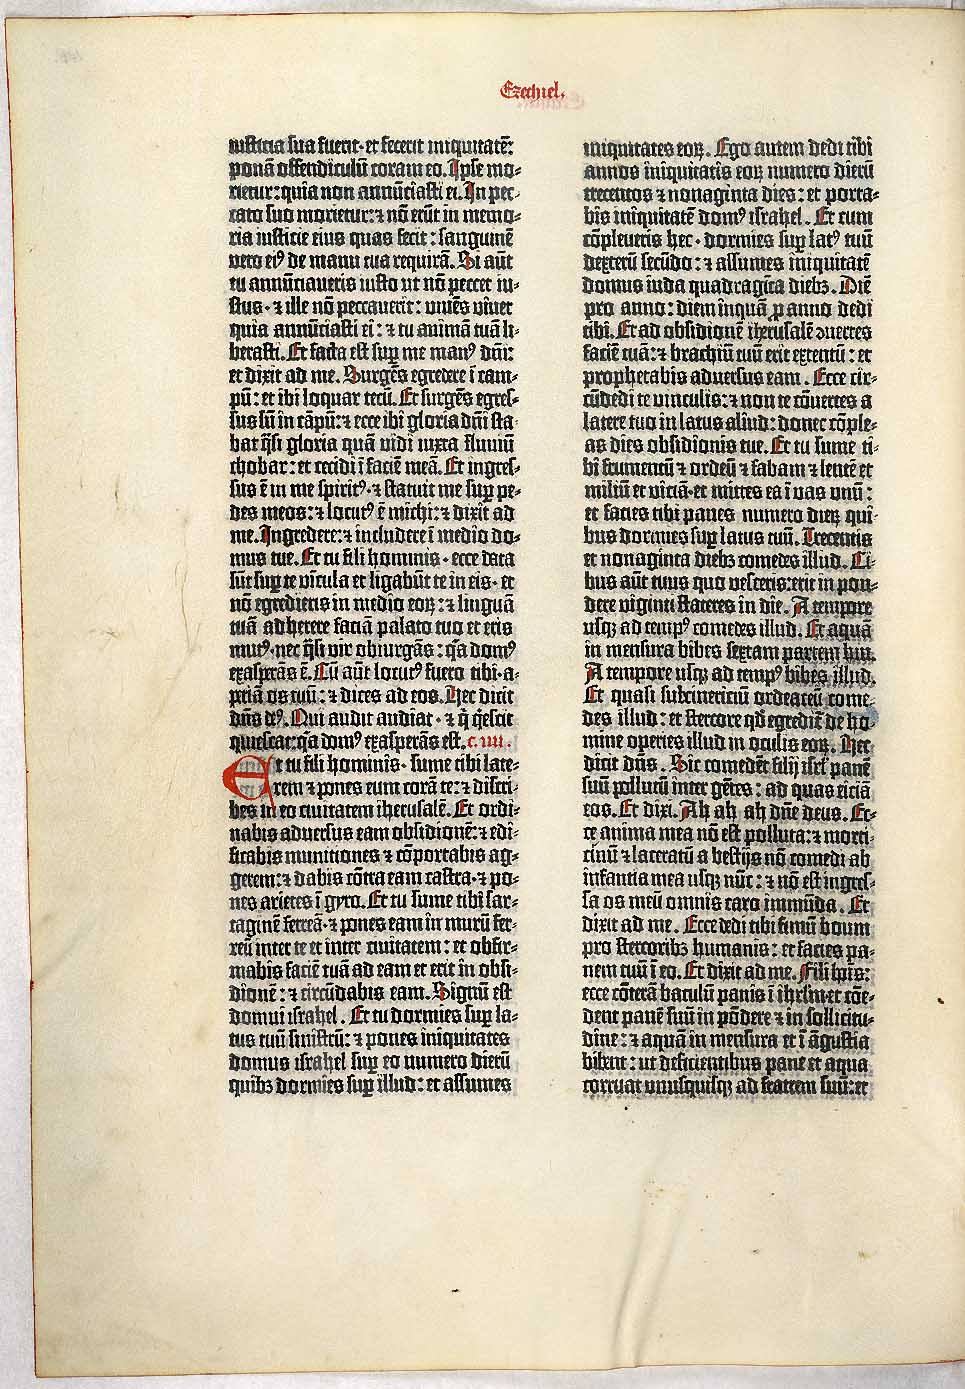 Ezechiel.
iusticia sua fuerit· et fecerit iniquitatē:
ponā offendiculū coram eo. Ipse mo-
rietur: quia non annūciasti ei. In pec-
cato suo morietur: ⁊ nō erūt in memo-
ria iusticie eius quas fecit: sanguinē
vero eiꝰ de manu tua requirā. Si aūt
tu annūciaueris iusto ut nō peccet iu-
stus· ⁊ ille nō peccauerit: viuēs viuet
quia annūciasti ei: ⁊ tu animā tuā li-
berasti. Et facta est suꝑ me manꝰ dn̄i:
et dixit ad me. Surgēs egredere ī cam-
pū: et ibi loquar tecū. Et surgēs egres-
sus sū in cāpū: ⁊ ecce ibi gloria dn̄i sta-
bat q̄si gloria quā vidi iuxta fluviū
chobar: et cecidi ī faciē meā. Et ingres-
sus ē in me spiritꝰ· ⁊ statuit me suꝑ pe-
des meos: ⁊ locutꝰ ē michi: ⁊ dixit ad
me. Ingredere: ⁊ includere ī medio do-
mus tue. Et tu fili hominis· ecce data
sūt suꝑ te vīcula et ligabūt te in eis· et
nō egredieris in medio eoꝝ: ⁊ linguā
tuā adherere faciā palato tuo et eris
mutꝰ· nec q̄si vir obiurgās: q̄a domꝰ
exasperās ē. Cū aūt locutꝰ fuero tibi· a-
periā os tuū: ⁊ dices ad eos. Hec dicit
dn̄s deꝰ. Qui audit audiat· ⁊ q̄ q̄escit
quiescat: q̄a domꝰ exasperās est. c. iiii.
Et tu fili hominis· sume tibi late-
rem ⁊ pones eum corā te: ⁊ discri-
bes in eo ciuitatem iherusalē. Et ordi-
nabis adversus eam obsidionē: ⁊ edi-
ficabis munitiones ⁊ cōportabis ag-
gerem: ⁊ dabis cōtra eam castra· ⁊ po-
nes arietes ī gyro. Et tu sume tibi sar-
taginē ferreā· ⁊ pones eam in murū fer-
reū inter te et inter ciuitatem: et obfir-
mabis faciē tuā ad eam et erit in obsi-
dionē: ⁊ circūdabis eam. Signū est
domui israhel. Et tu dormies suꝑ la-
tus tuū sinistrū: ⁊ pones iniquitates
domus israhel suꝑ eo numero dierū
quibꝫ dormies suꝑ illud: et assumes
iniquitates eoꝝ. Ego autem dedi tibi
annos iniquitatis eoꝝ numero dierū
trecentos ⁊ nonaginta dies: et porta-
bis iniquitatē domꝰ israhel. Et cum
cōpleueris hec· dormies suꝑ latꝰ tuū
dexterū secūdo: ⁊ assumes iniquitatē
domus iuda quadragīta diebꝫ. Diē
pro anno: diem inquā ꝓ anno dedi
tibi. Et ad obsidionē iherusalē ↄuertes
faciē tuā: ⁊ brachiū tuū erit extentū: et
prophetabis adversus eam. Ecce cir-
cūdedi te vinculis: ⁊ non te cōuertes a
latere tuo in latus aliud: donec cōple-
as dies obsidionis tue. Et tu sume ti-
bi frumentū ⁊ ordeū ⁊ fabam ⁊ lentē et
miliū et viciā· et mittes ea ī vas unū:
et facies tibi panes numero dieꝝ qui-
bus dormies suꝑ latus tuū. Trecentis
et nonaginta diebꝫ comedes illud. Ci-
bus aūt tuus quo vesceris: erit in pon-
dere viginti stateres in die. A tempore
usqꝫ ad tempꝰ comedes illud. Et aquā
in mensura bibes sextam partem hin.
A tempore usqꝫ ad tempꝰ bibes illud.
Et quasi subcinericiū ordeaceū come-
des illud: et stercore qd̄ egrediē de ho-
mine operies illud in oculis eoꝝ. Hec
dicit dn̄s. Sic comedēt filij isrl̄ panē
suū pollutū inter gētes: ad quas eiciā
eos. Et dixi. Ah ah ah dn̄e deus. Ec-
ce anima mea nō est polluta: ⁊ morti-
cinū ⁊ laceratū a bestijs nō comedi ab
infantia mea usqꝫ nūc: ⁊ nō est ingres-
sa os meū omnis caro immūda. Et
dixit ad me. Ecce dedi tibi fimū boum
pro stercoribꝫ humanis: et facies pa-
nem tuū ī eo. Et dixit ad me. Fili hoīs:
ecce cōterā baculū panis ī ihrl̄m· et cōe-
dent panē suū in pōdere ⁊ in sollicitu-
dine: ⁊ aquā in mensura et ī āgustia
bibent: ut deficientibus pane et aqua
corruat unusquisqꝫ ad fratrem suū: et